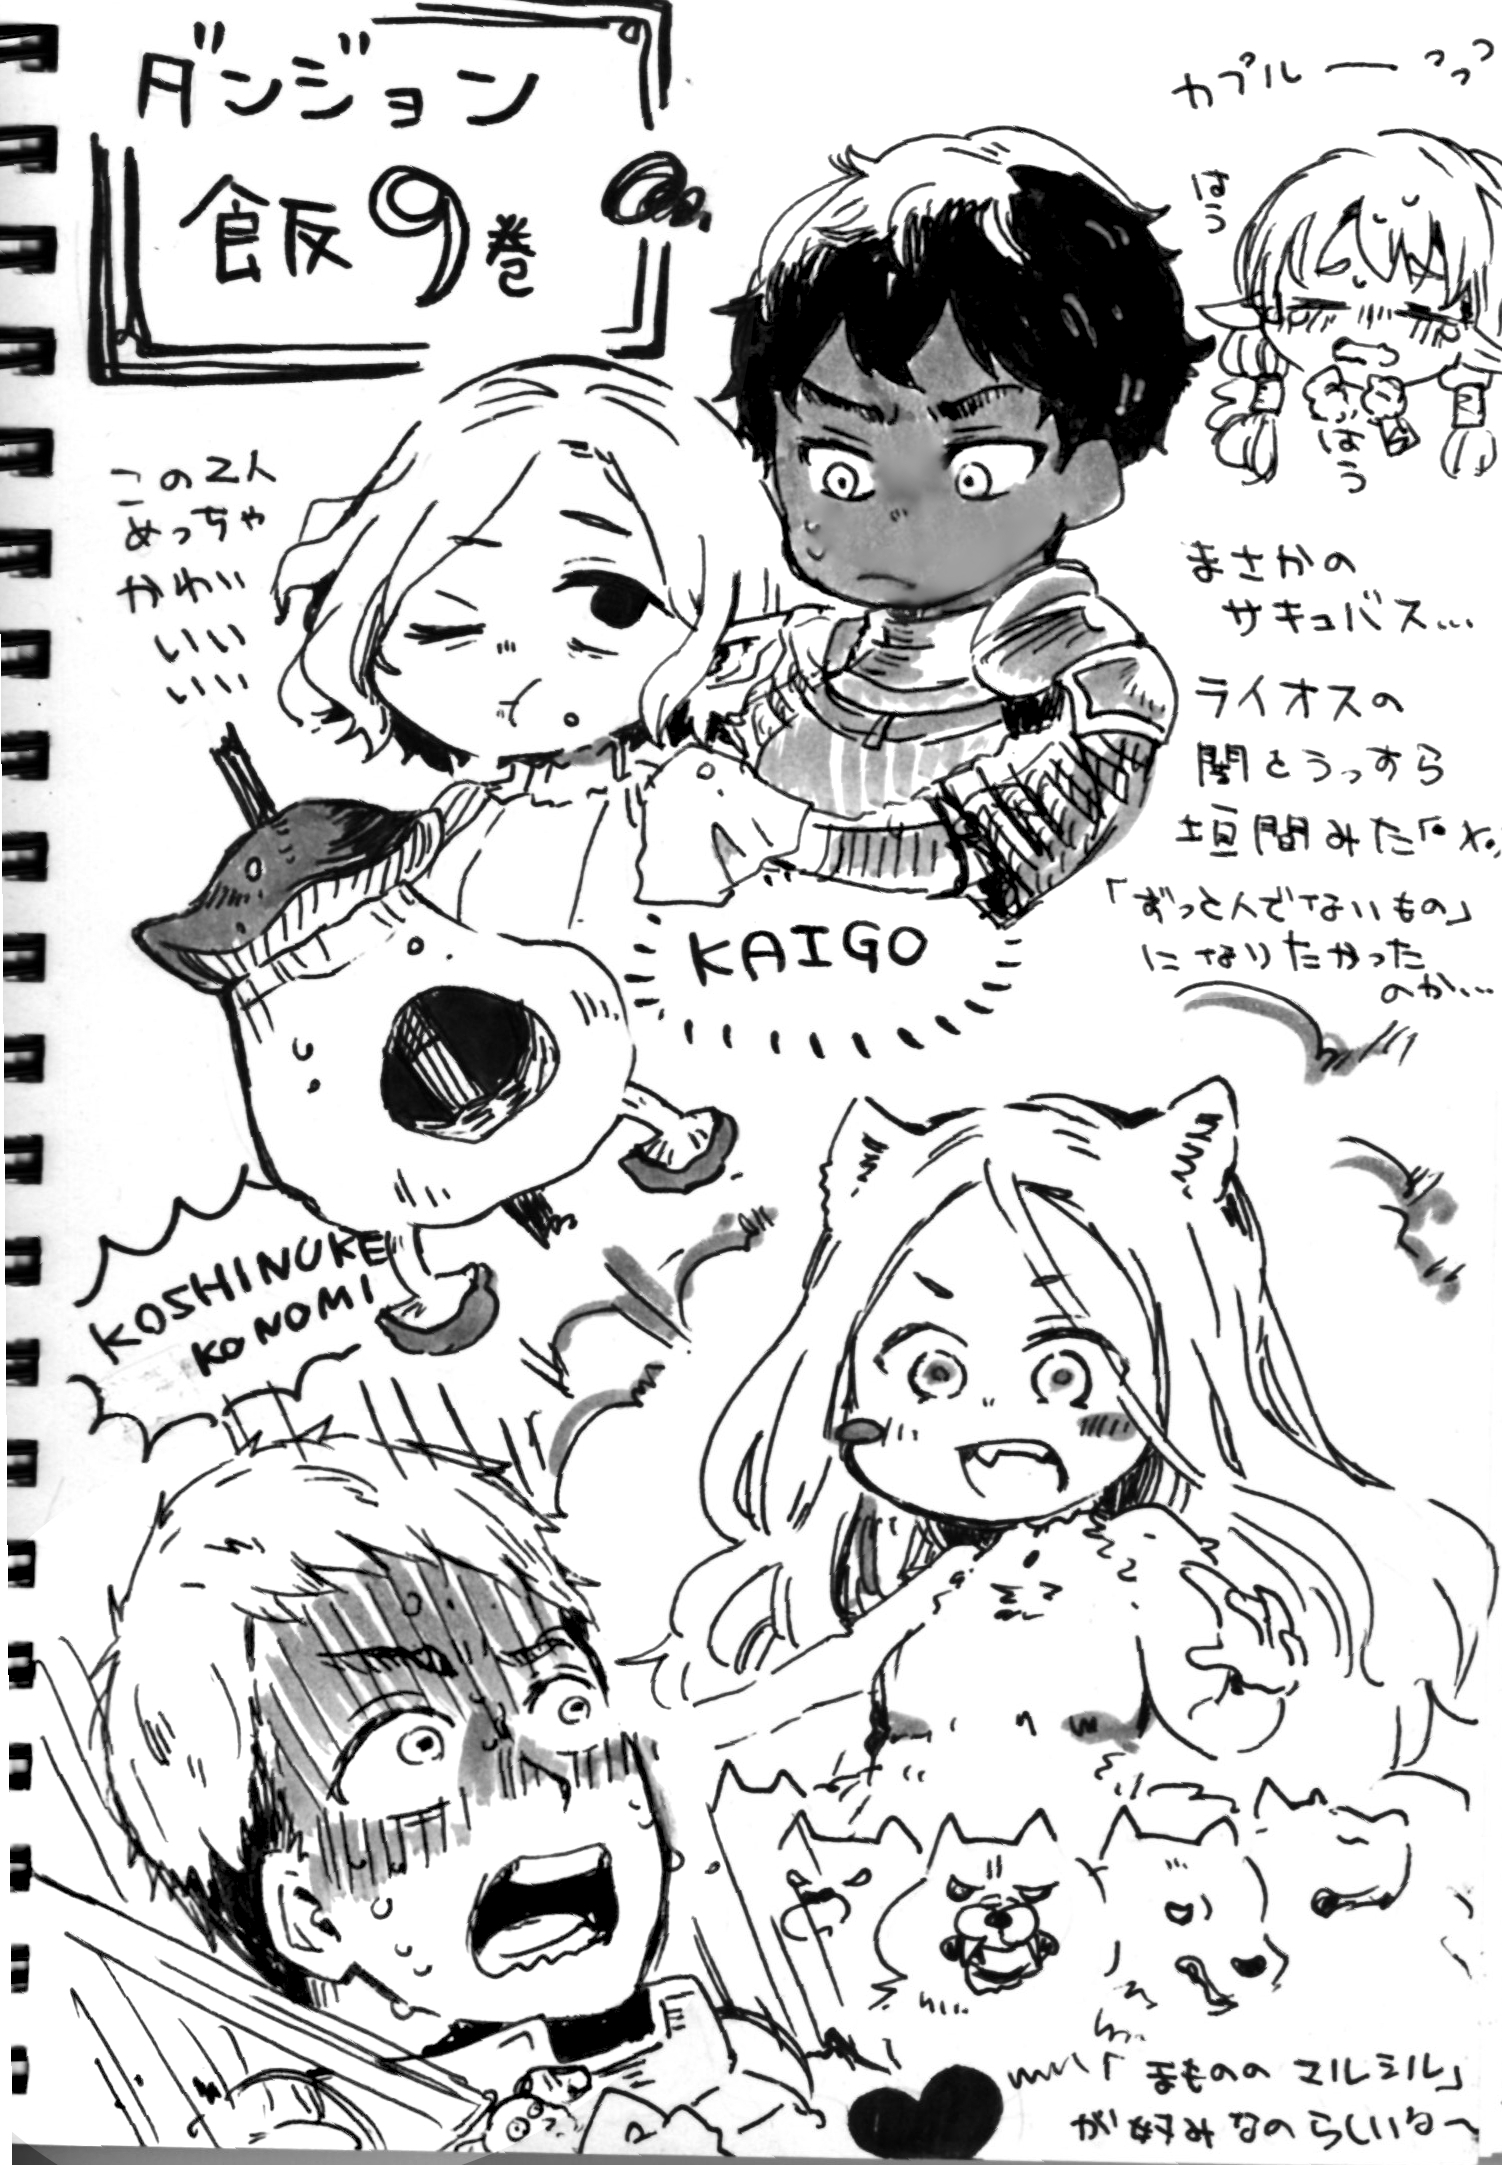 ダンジョン
飯9巻
カブルーっっっ
はう
はう
この2人
めっちゃ
かわい
いい
いい
まさかの
サキュバス…
ライオスの
闇とうっすら
垣間みた「
「ずっと人でないもの」
になりたかった
のか…
KAIGO
KOSHINUKE
KONOMI
「まものの マルシル」
が好みなのらしいね〜